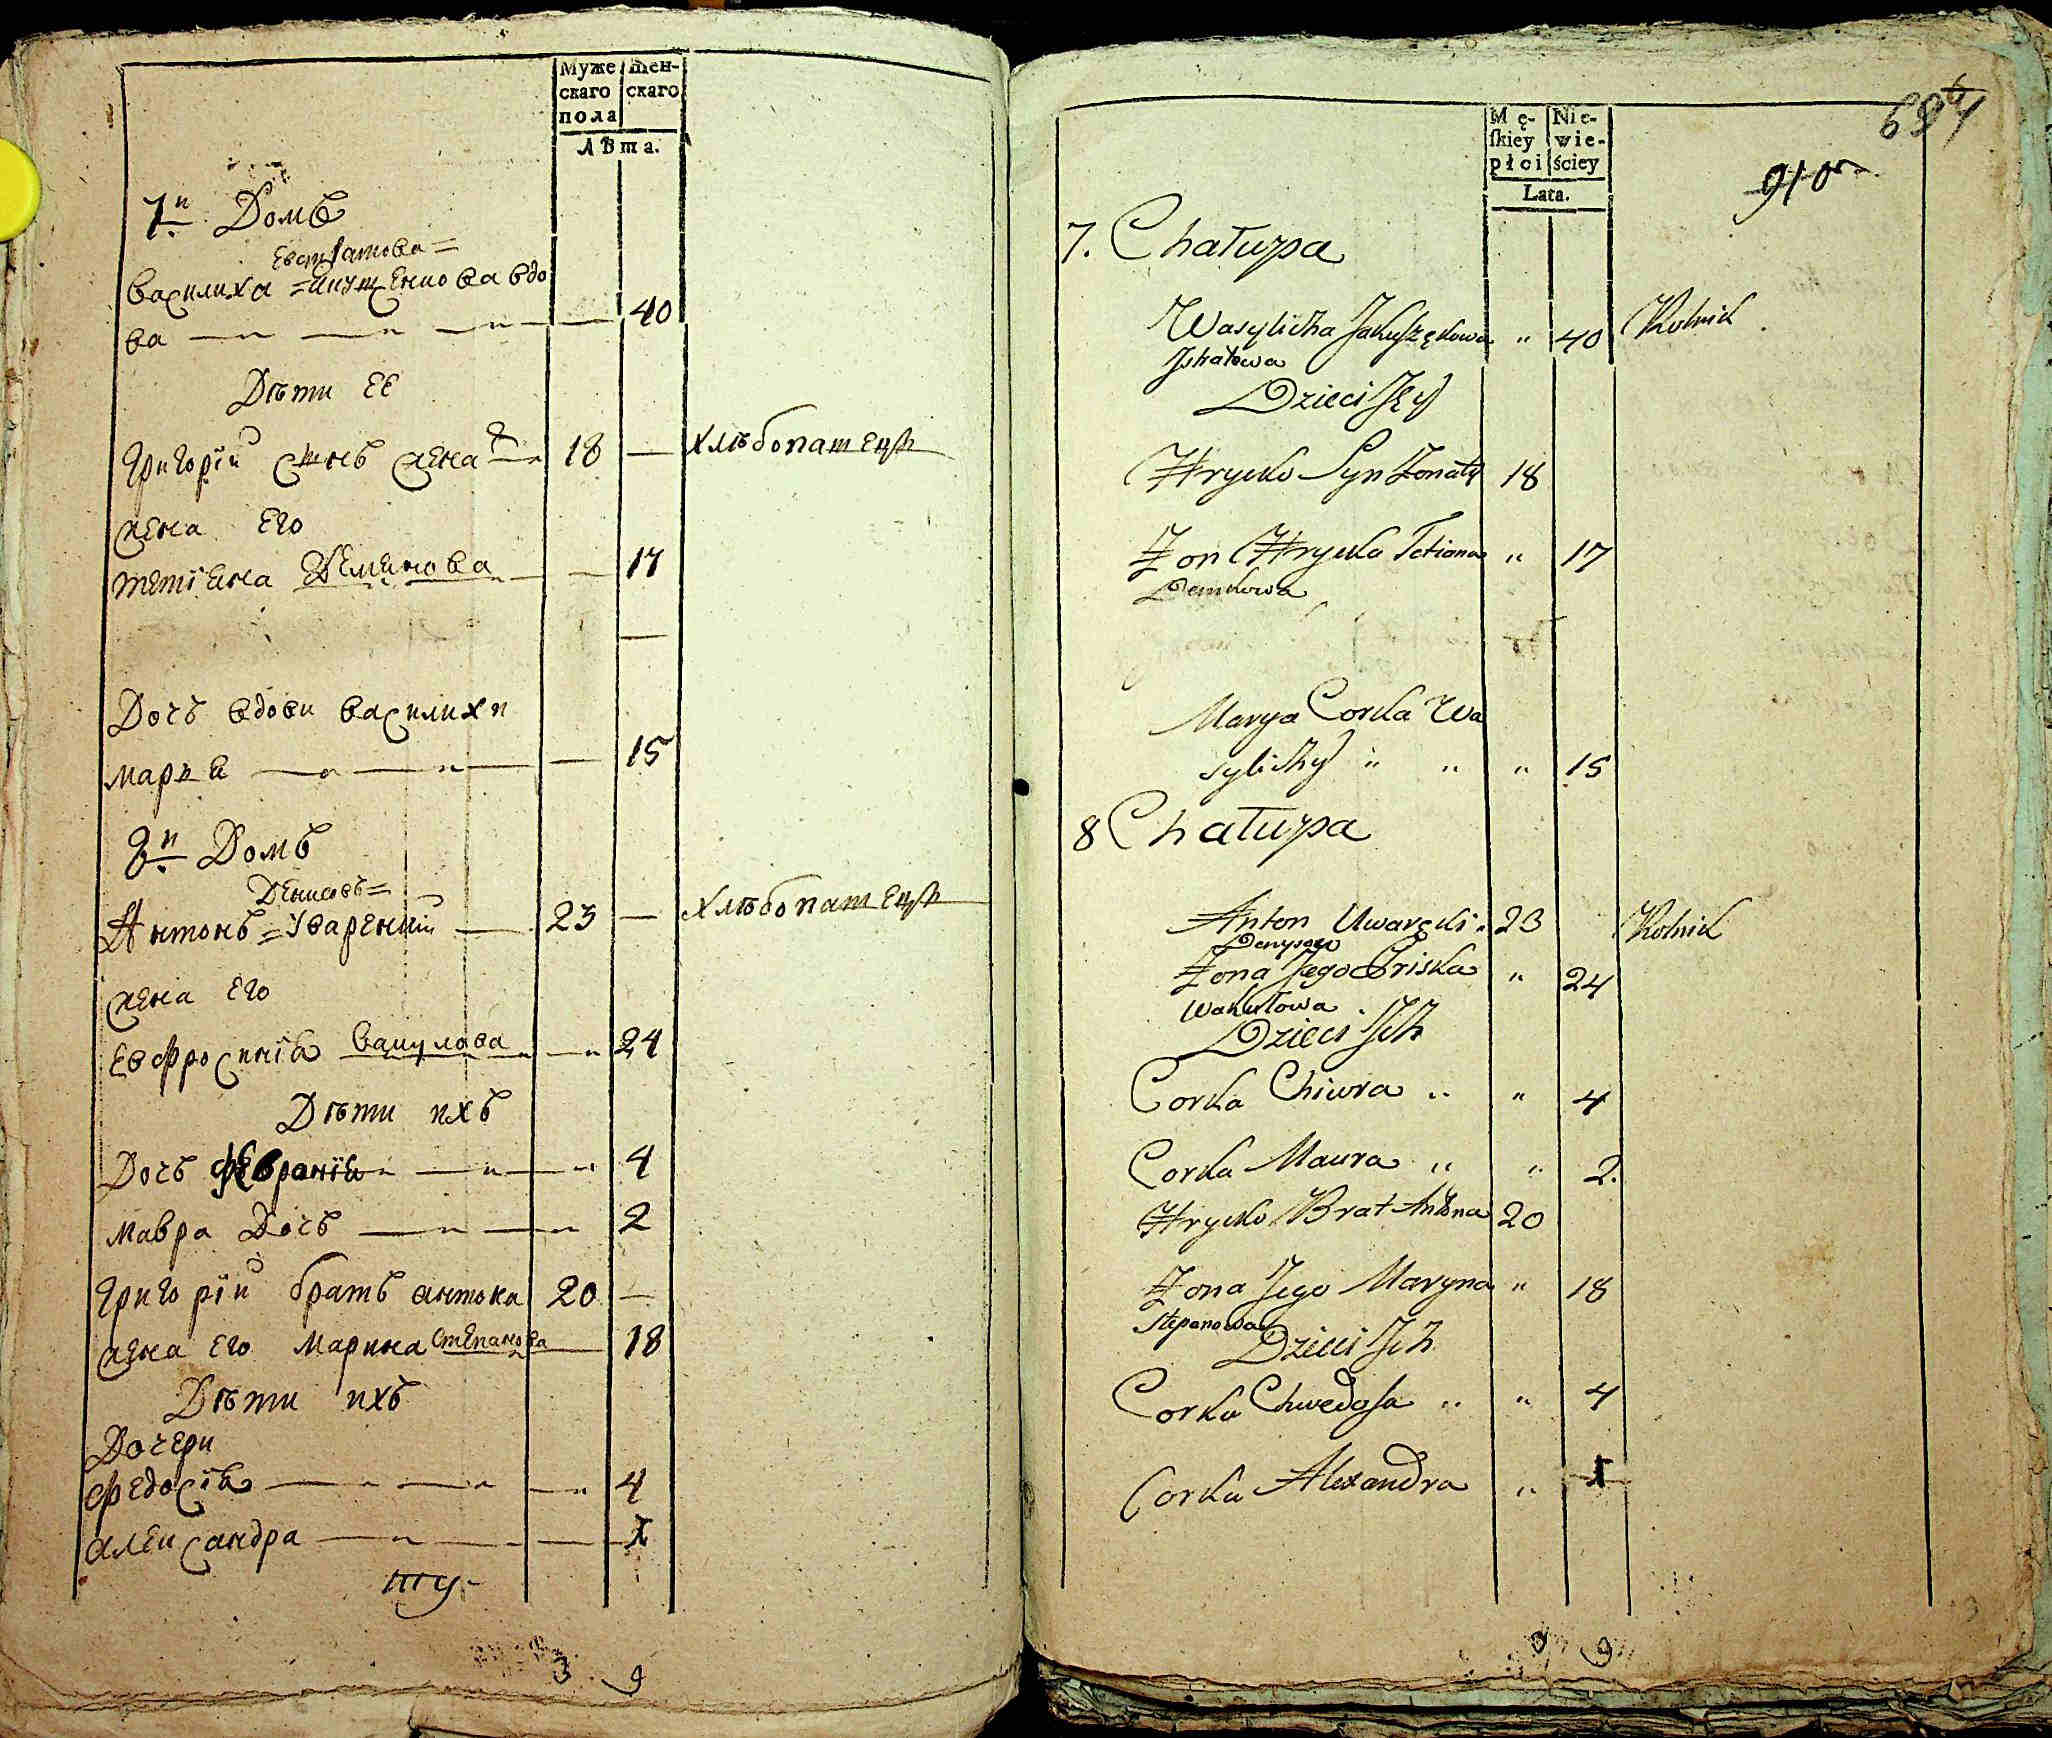 Муже
скаго
пола
жен-
скаго
Лѣта.
7й Домъ
Евстратова=
Василиха =Якутенкова вдо
ва 40
Дѣти ее
Григорій сынъ жена 18 хлѣбопашецъ
жена его
Тетіяна Демкова 17
Дочъ вдови Василихи
Мария 15
8й Домъ
Денисовъ=
Антонъ =Уваренкій 23 хлѣбопашецъ
жена его
Евфросинія Вакулова 24
Дѣти ихъ
Дочъ Февронія 4
Мавра Дочъ 2
Григорій братъ Антона 20
жена его Марина Степанова 18
Дѣти ихъ
Дочери
Федосія 4
Александра 1
3 9
Mę-
ſkiey
płci
Nie-
wie-
ściey
Lata.
910
7. Chałupa
Wasylicha Jakuszękowa " 40 Rolnik
Istratowa
Dzieci Jey
Hrycko Syn Żonaty 18
Żon Hrycka Tetiana " 17
Demkowa
Marya Corka Wa
sylichy " " " 15
8 Chałupa
Anton Uwaręcki " 23 Rolnik
Denysow
Żona Jego Priska " 24
Wakułowa
Dzieci Ich
Corka Chiwra " " 4
Corka Maura " " 2.
Hrycko Brat Antona 20
Żona Jego Maryna " 18
Stepanowa
Dzieci Ich
Corka Chwedosa " " 4
Corka Alexandra " 1
9